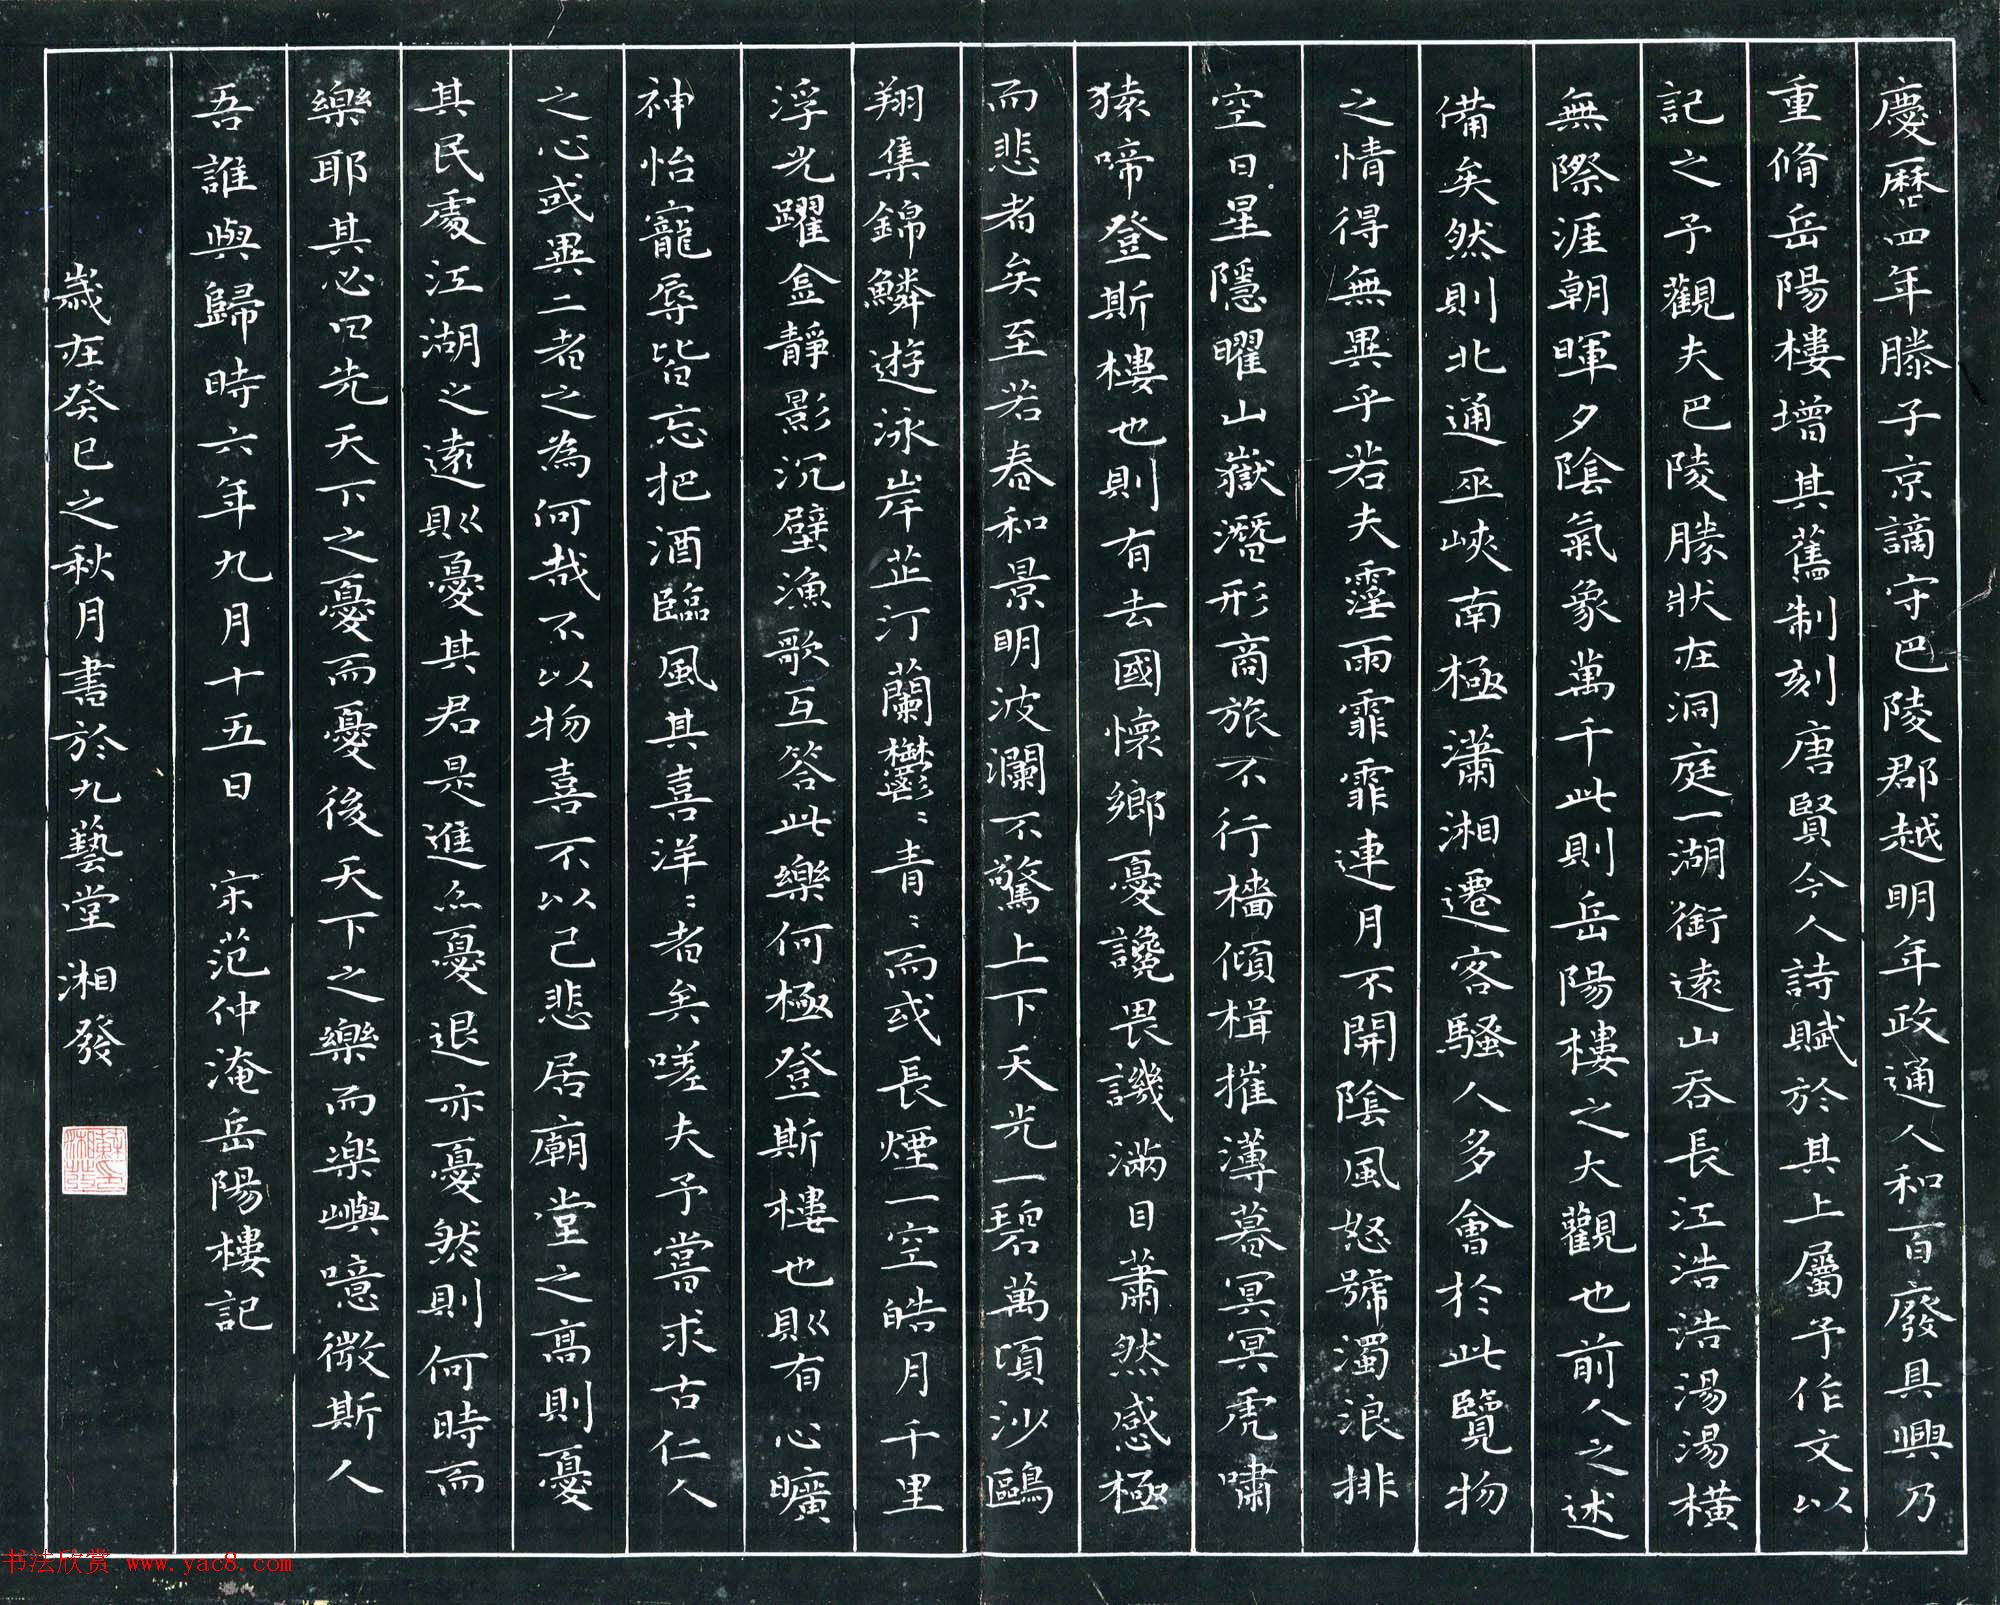 慶曆四年滕子京謫守巴陵郡越明年政通人和百廢具興乃
重脩岳陽樓增其舊制刻唐賢今人詩賦於其上屬予作文以
記之予觀夫巴陵勝狀在洞庭一湖銜遠山吞長江浩浩湯湯橫
無際涯朝暉夕陰氣象萬千此則岳陽樓之大觀也前人之述
備矣然則北通巫峽南極瀟湘遷客騷人多會於此覽物
之情得無異乎若夫霪雨霏霏連月不開陰風怒號濁浪排
空日星隱曜山嶽潛形商旅不行檣傾楫摧薄暮冥冥虎嘯
猿啼登斯樓也則有去國懷鄉憂讒畏譏滿目蕭然感極
而悲者矣至若春和景明波瀾不驚上下天光一碧萬頃沙鷗
翔集錦鱗遊泳岸芷汀蘭鬱〻青〻而或長煙一空皓月千里
浮光躍金靜影沉璧漁歌互答此樂何極登斯樓也則有心曠
神怡寵辱皆忘把酒臨風其喜洋〻者矣嗟夫予嘗求古仁人
之心或異二者之為何哉不以物喜不以己悲居廟堂之高則憂
其民處江湖之遠則憂其君是進亦憂退亦憂然則何時而
樂耶其必曰先天下之憂而憂後天下之樂而樂嶼噫微斯人
吾誰與歸時六年九月十五日 宋范仲淹岳陽樓記
歲在癸巳之秋月書於九藝堂湘發
书法欣赏 www.yac8.com